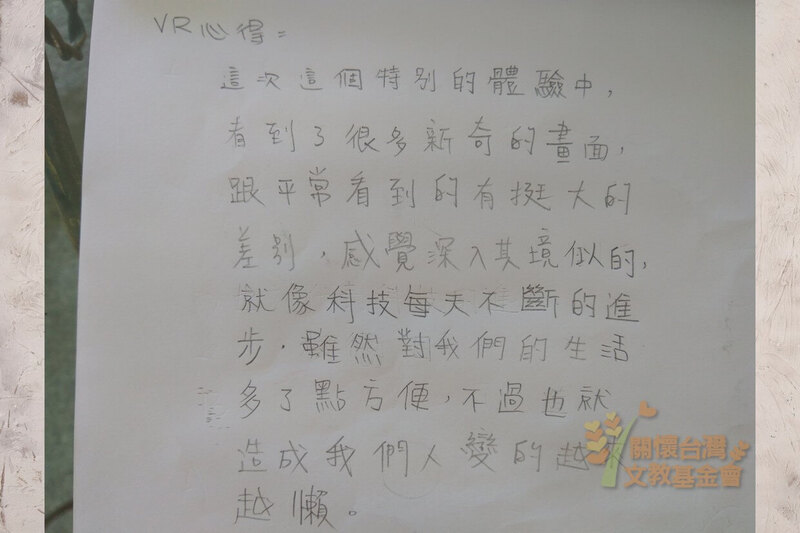 VR心得=
這次這個特別的體驗中,
看到了很多新奇的畫面,
跟平常看到的有挺大的
差別,感覺深入其境似的,
就像科技每天不斷的進
步,雖然對我們的生活
多了點方便,不過也就
造成我們人變的越來
越懶。
關懷台灣
文教基金會